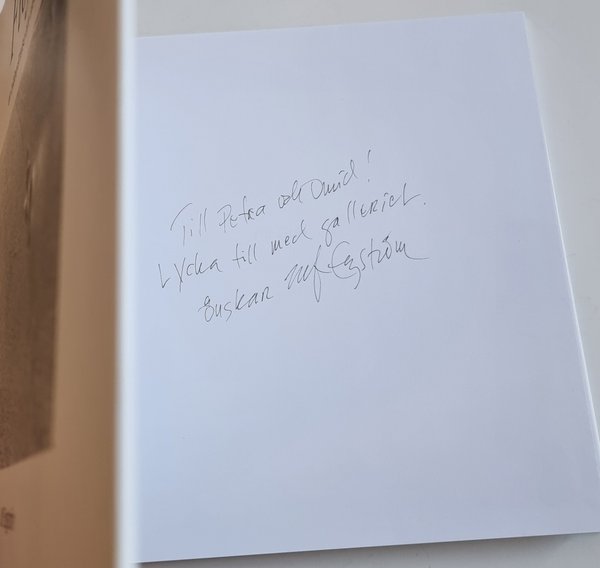 Till Petra och Omid!
Lycka till med galleriet.
önskar Ulf